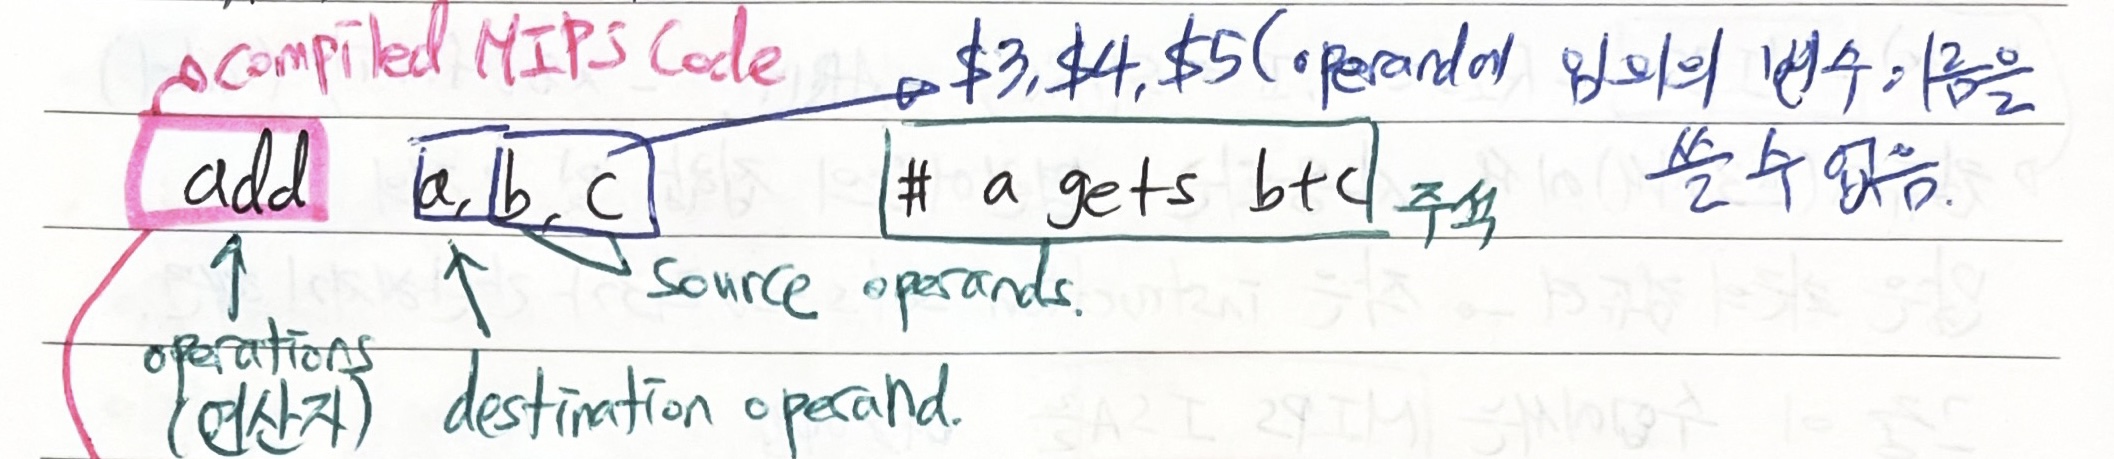 compiled MIPS Code
$3, $4, $5 (operand에 임의의 변수 이름을
쓸 수 없음.
add a, b, c # a gets b+c 주석
source operands.
operations
(연산자)
destination operand.